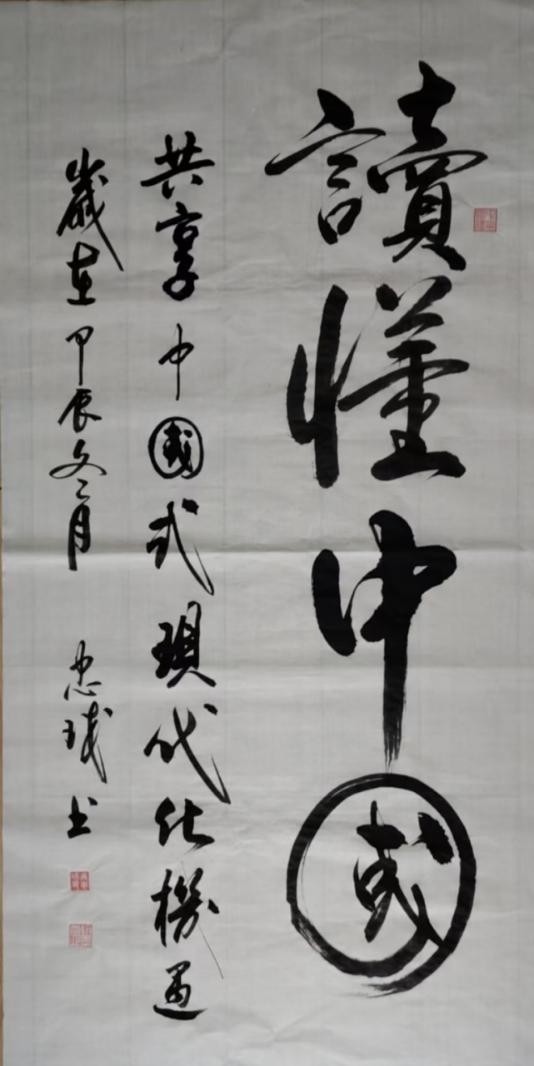 讀懂中國
共享中國式現代化機遇
歲在甲辰冬二月 忠誠書